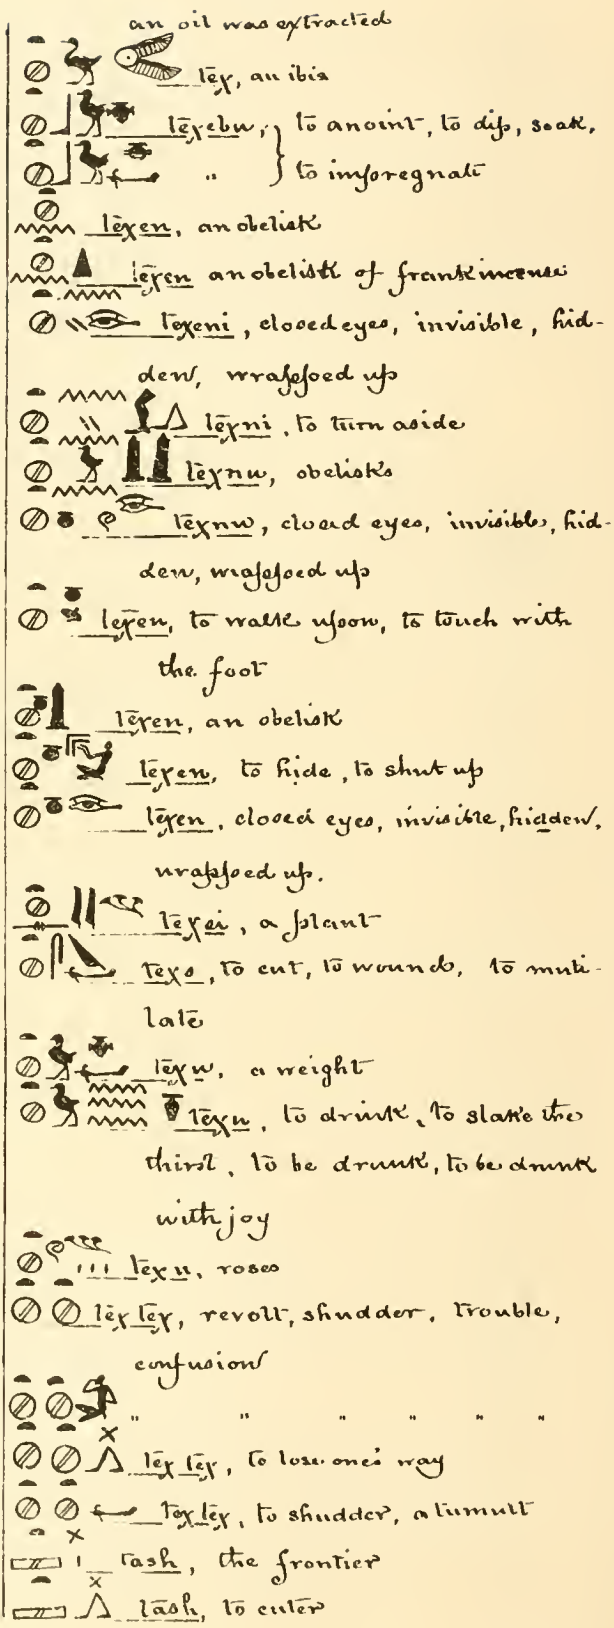 an oil was extracted
tēχ, an ibis
tēχebu, } to anoint, to dip, soak,
" } to impregnate
tēχen, an obelisk
tēχen an obelisk of frankincense
teχeni, closed eyes, invisible, hid-
den, wrapped up
tēχni, to turn aside
tēχnu, obelisks
tēχnu, closed eyes, invisible, hid-
den, wrapped up
teχen, to walk upon, to touch with
the foot
tēχen, an obelisk
tēχen, to hide, to shut up
tēχen, closed eyes, invisible, hidden,
wrapped up.
tēχai, a plant
teχs, to cut, to wound, to muti-
late
tēχu, a weight
tēχu, to drink, to slake the
thirst, to be drunk, to be drunk
with joy
tēχu, roses
tēχ tēχ, revolt, shudder, trouble,
confusion
" " " " " "
tēχ tēχ, to lose one's way
teχ tēχ, to shudder, a tumult
tash, the frontier
tash, to enter